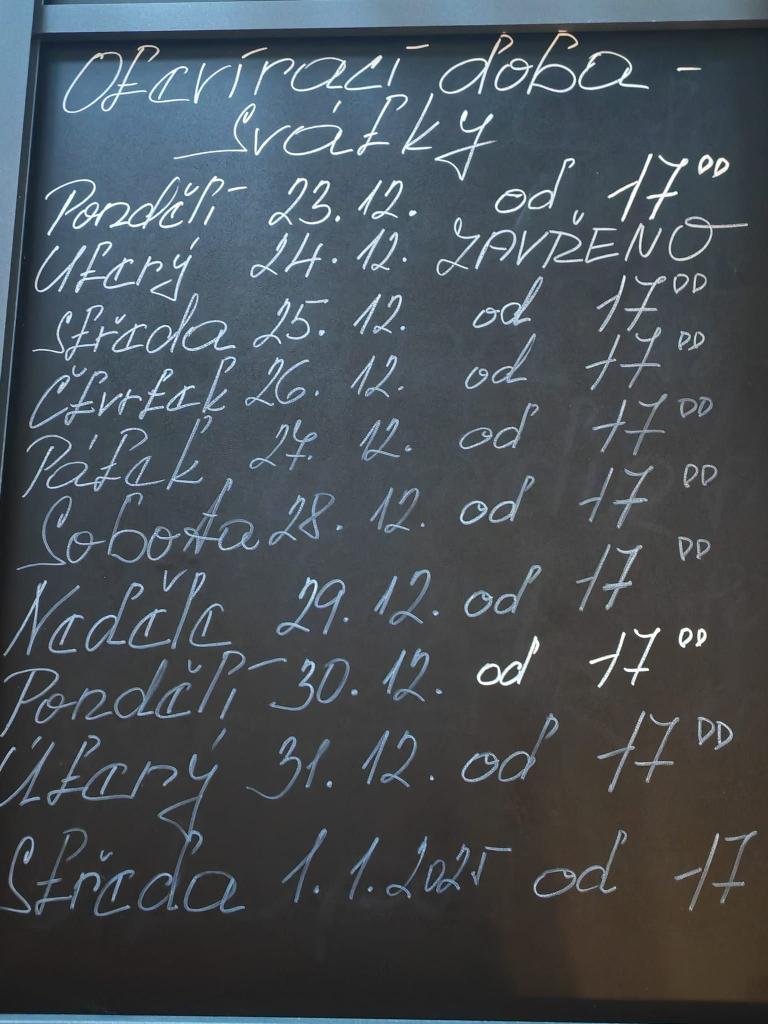 Otevírací doba -
svátky
Pondělí 23. 12. od 17⁰⁰
Úterý 24. 12. ZAVŘENO
Středa 25. 12. od 17⁰⁰
Čtvrtek 26. 12. od 17⁰⁰
Pátek 27. 12. od 17⁰⁰
Sobota 28. 12. od 17⁰⁰
Neděle 29. 12. od 17⁰⁰
Pondělí 30. 12. od 17⁰⁰
Úterý 31. 12. od 17⁰⁰
Středa 1. 1. 2025 od 17